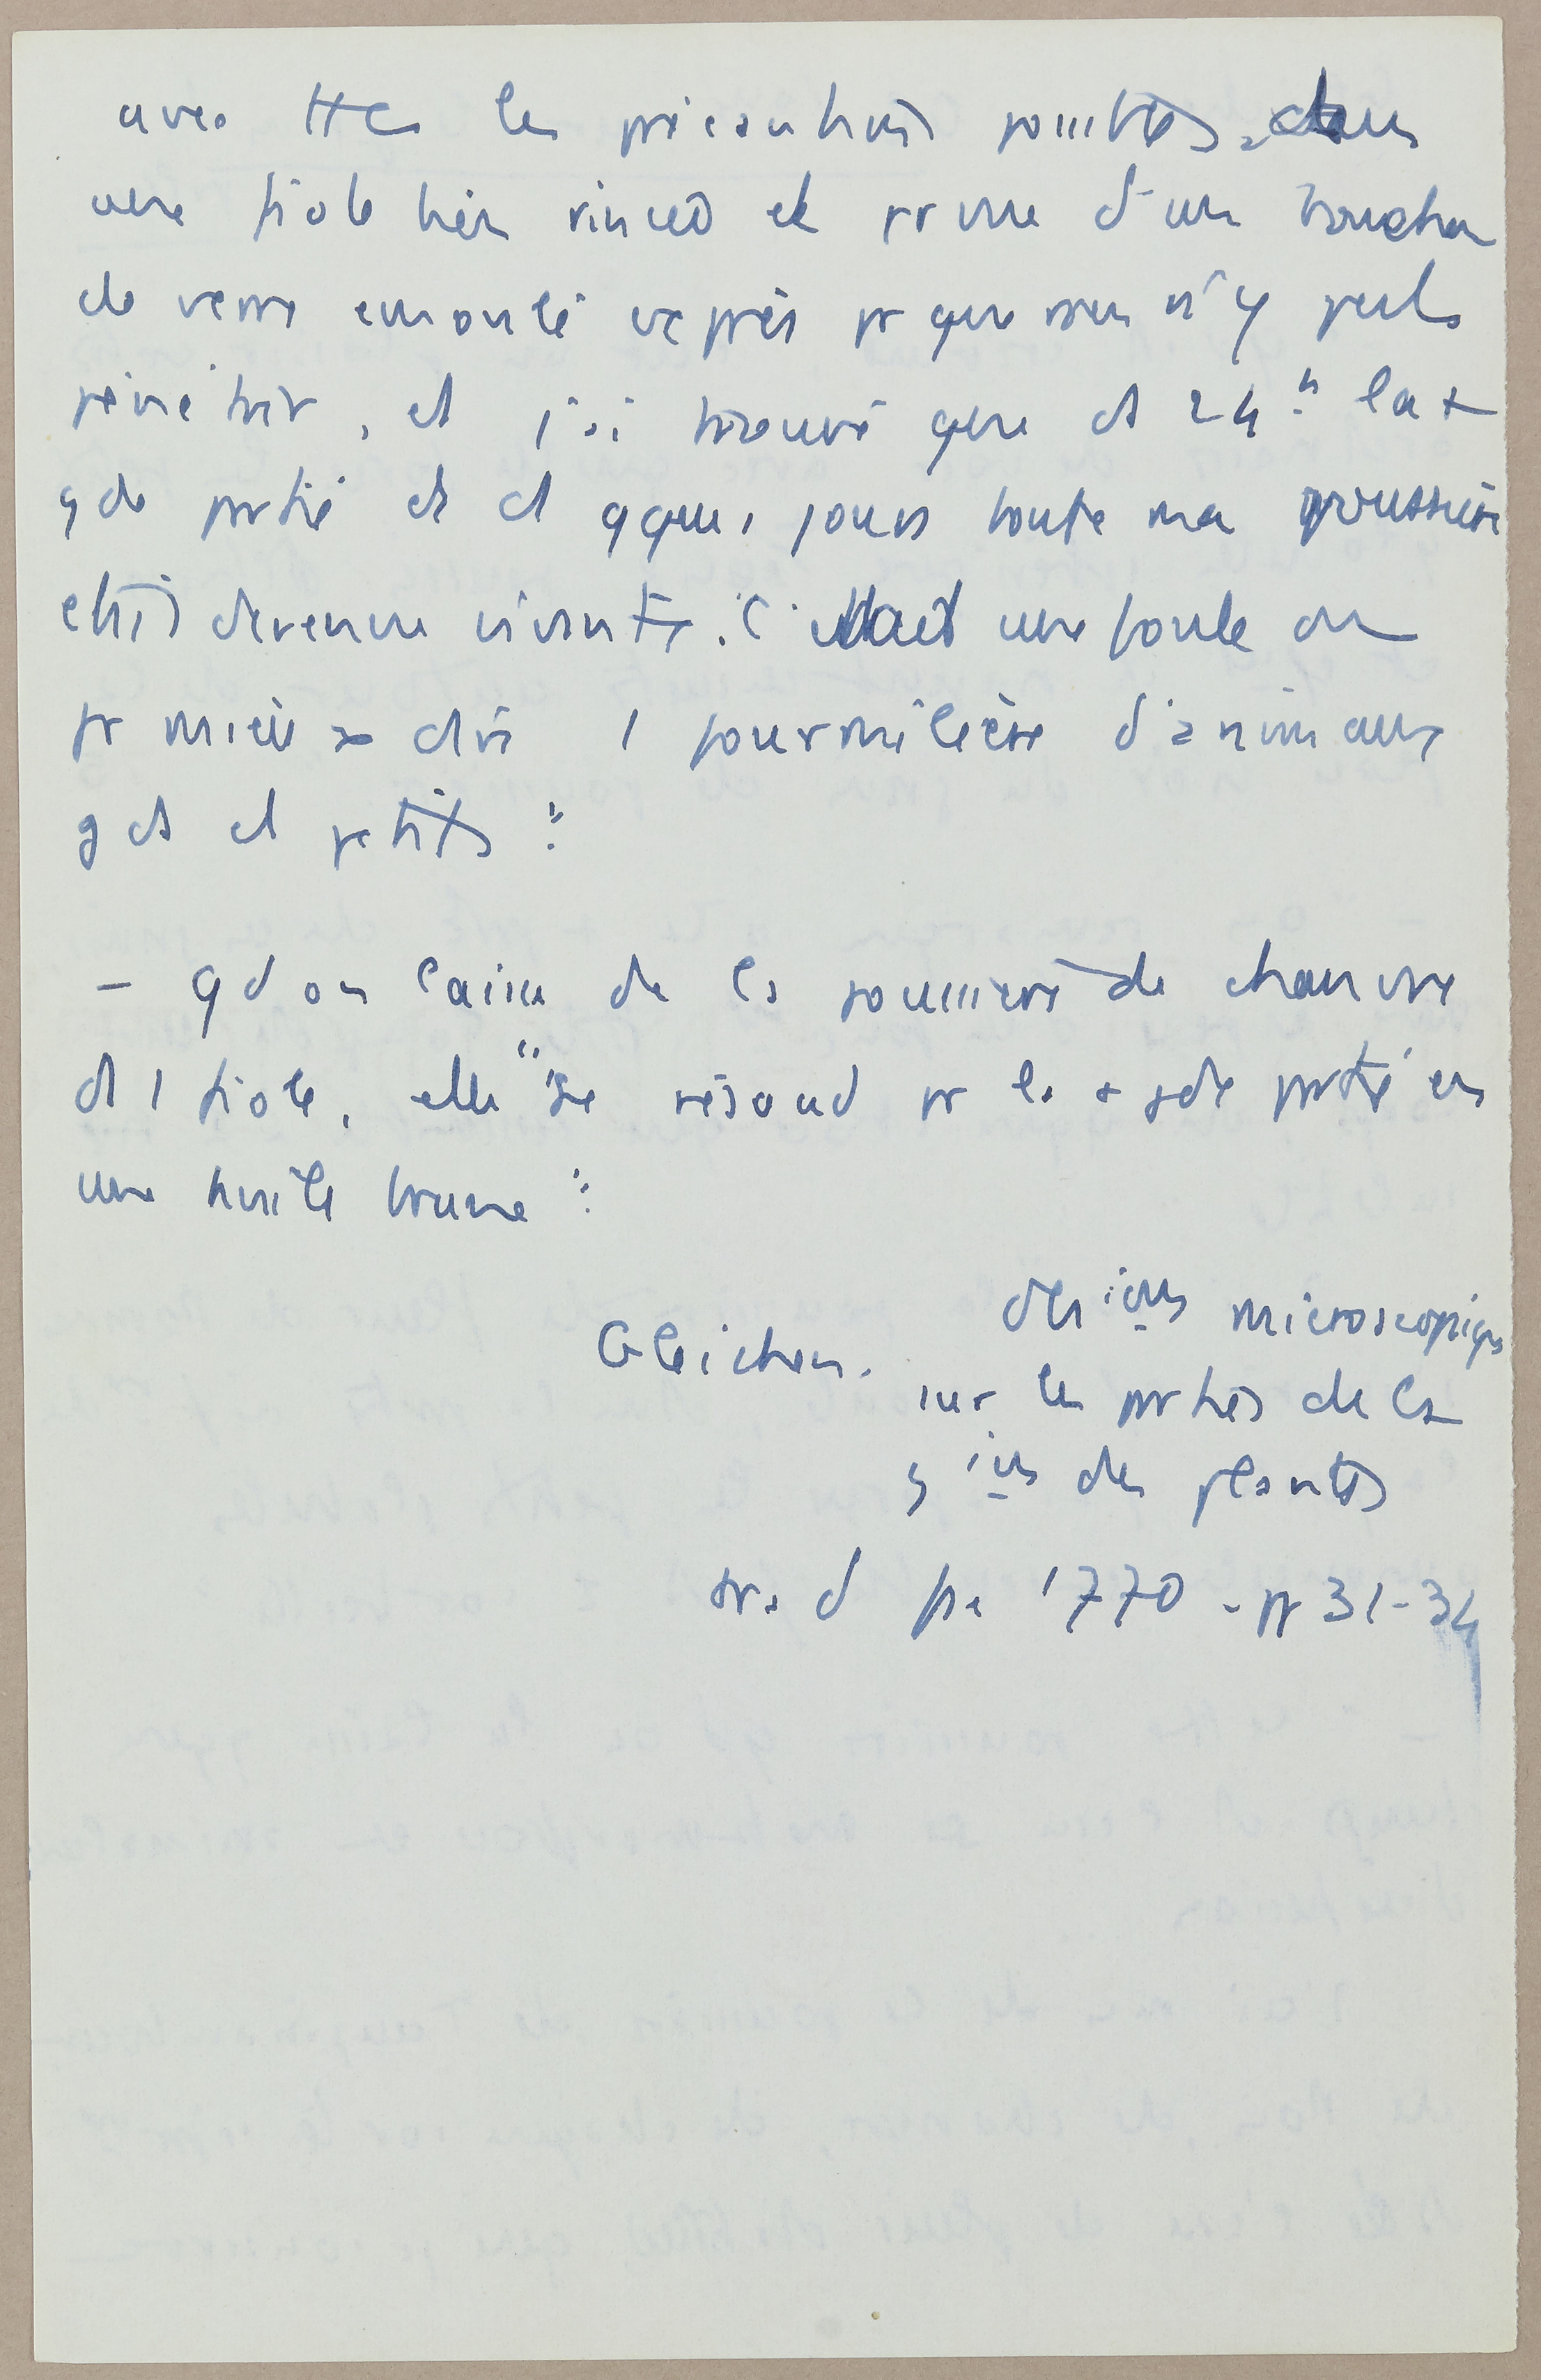 avec ttes les précautions possibles, dans
une fiole bien rincée et prvue d'un bouchon
de verre émoulé exprès pr que rien n'y peut
pénétrer, et j'ai trouvé que ds 24 h la +
gde partie et ds qques jours toute ma poussière
était devenue vivante. C'était une foule ou
pr mieux dire 1 fourmilière d'animaux
gds et petits "
- qd on laisse de la poussière de chanvre
ds 1 fiole, elle "se résoud pr la + gde partie en
une huile brune "
Gleichen. Obs ions microscopiques
sur les parties de la
g ion des plantes
trad fse 1770 - pp 31-34